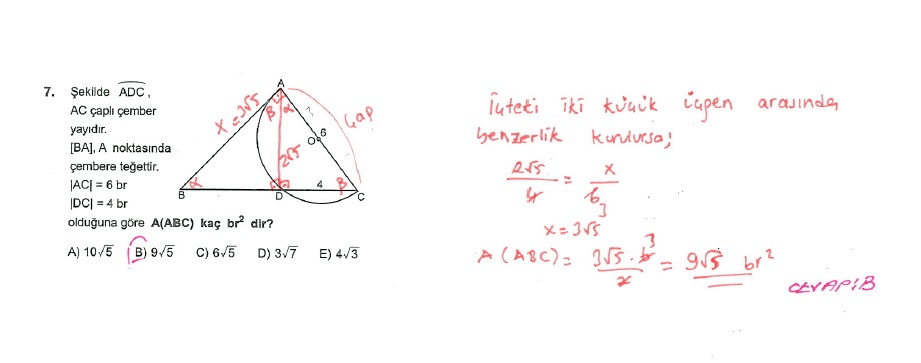 7. Şekilde ADC,
AC çaplı çember
yayıdır.
[BA], A noktasında
çembere teğettir.
|AC| = 6 br
|DC| = 4 br
olduğuna göre A(ABC) kaç br² dir?
A) 10√5 B) 9√5 C) 6√5 D) 3√7 E) 4√3
A
x = 3√5
β α
3
Çap
O 6
2√5
α
4
β
B D C
İçteki iki küçük üçgen arasında
benzerlik kurulursa;
2√5/4 = x/6
3
x = 3√5
A(ABC) = 3√5 . 6/2 = 9√5 br²
3
CEVAP: B